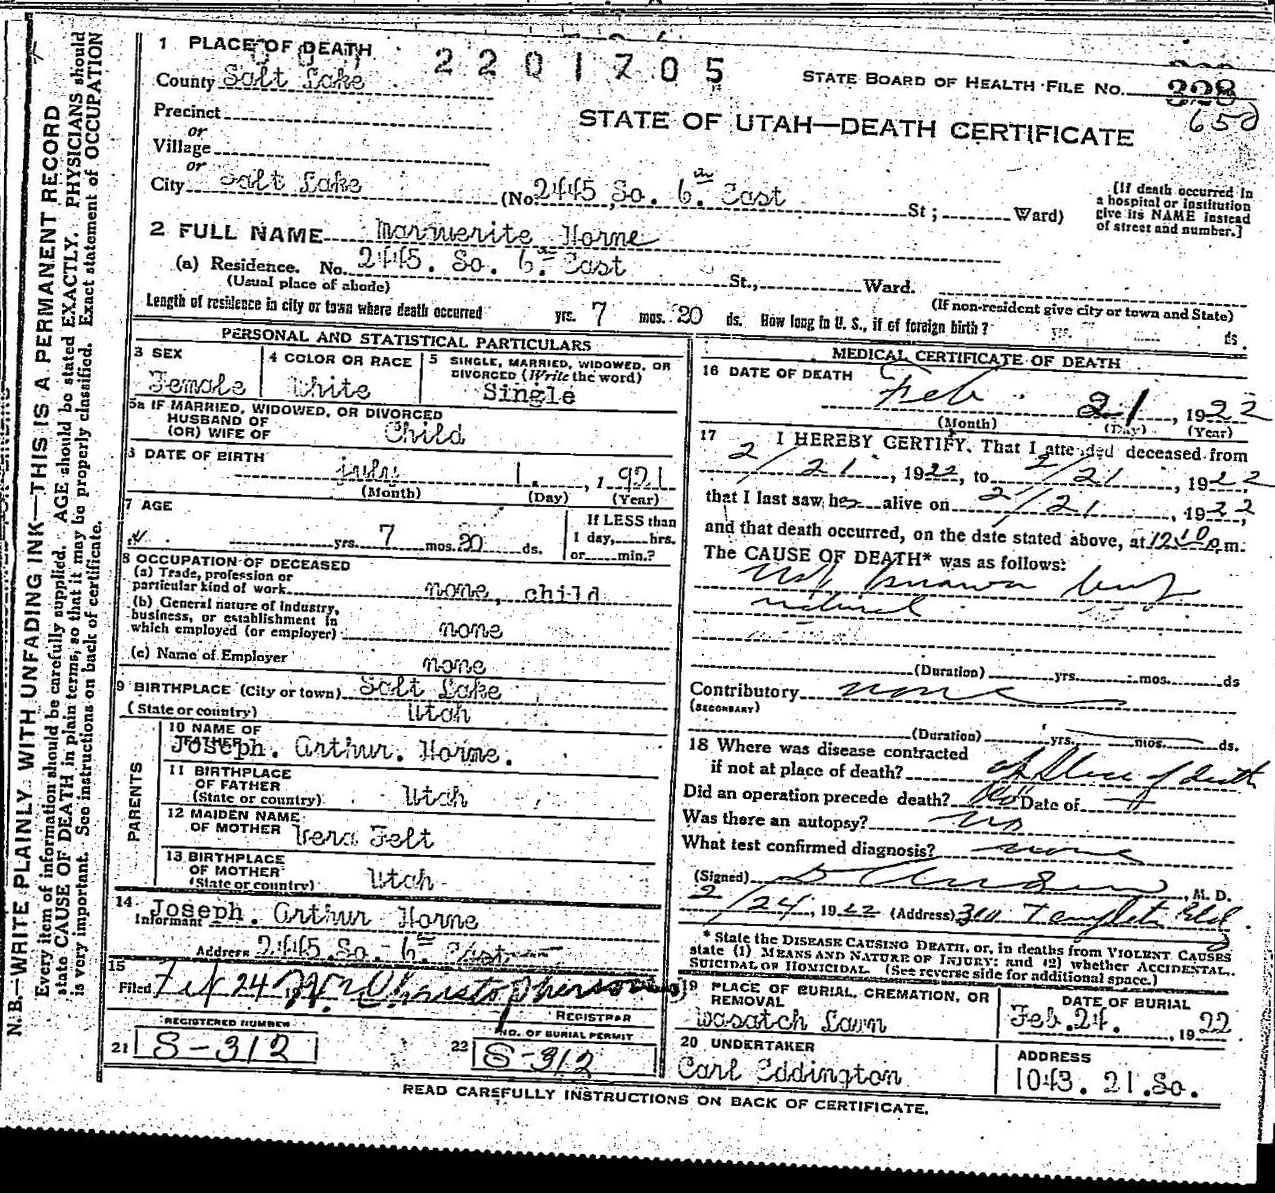 1 PLACE OF DEATH
2201705
County Salt Lake
STATE BOARD OF HEALTH FILE NO. 328
650
Precinct
or
Village
or
STATE OF UTAH—DEATH CERTIFICATE
City Salt Lake (No. 2445 So. 6th East St; Ward)
[If death occurred in
a hospital or institution
give its NAME instead
of street and number.]
2 FULL NAME Marguerite Horne
(a) Residence. No. 2445. So. 6th East St., Ward.
(Usual place of abode)
(If non-resident give city or town and State)
Length of residence in city or town where death occurred yrs. 7 mos. 20 ds. How long in U. S., if of foreign birth? yrs. ds.
PERSONAL AND STATISTICAL PARTICULARS
3 SEX
Female
4 COLOR OR RACE
White
5 SINGLE, MARRIED, WIDOWED, OR
DIVORCED (Write the word)
Single
5a IF MARRIED, WIDOWED, OR DIVORCED
HUSBAND OF
(OR) WIFE OF Child
6 DATE OF BIRTH
july 1. 1921
(Month) (Day) (Year)
7 AGE
yrs. 7 mos. 20 ds.
If LESS than
1 day, hrs.
or min.?
8 OCCUPATION OF DECEASED
(a) Trade, profession or
particular kind of work none, child
(b) General nature of industry,
business, or establishment in
which employed (or employer) none
(c) Name of Employer none
9 BIRTHPLACE (City or town) Salt Lake
(State or country) Utah
PARENTS
10 NAME OF
FATHER Joseph. Arthur. Horne.
11 BIRTHPLACE
OF FATHER
(State or country) Utah
12 MAIDEN NAME
OF MOTHER Vera Felt
13 BIRTHPLACE
OF MOTHER
(State or country) Utah
14 Informant Joseph. Arthur Horne
Address 2445 So. 6th East
15
Filed Feb 24 Wm Christophersons
REGISTRAR
REGISTERED NUMBER
21 S-312
NO. OF BURIAL PERMIT
22 S-312
MEDICAL CERTIFICATE OF DEATH
16 DATE OF DEATH
Feb. 21, 1922
(Month) (Day) (Year)
17 I HEREBY CERTIFY, That I attended deceased from
2/21, 1922, to 2/21, 1922
that I last saw her alive on 2/21, 1922,
and that death occurred, on the date stated above, at 12:10 p m.
The CAUSE OF DEATH* was as follows:
natural
(Duration) yrs. mos. ds
Contributory none
(SECONDARY)
(Duration) yrs. mos. ds.
18 Where was disease contracted
if not at place of death? at place of death
Did an operation precede death? No Date of
Was there an autopsy? no
What test confirmed diagnosis? none
(Signed) M. D.
2/24, 1922 (Address) Templeton Bld
* State the DISEASE CAUSING DEATH, or, in deaths from VIOLENT CAUSES
state (1) MEANS AND NATURE OF INJURY; and (2) whether ACCIDENTAL,
SUICIDAL OR HOMICIDAL. (See reverse side for additional space.)
19 PLACE OF BURIAL, CREMATION, OR
REMOVAL
Wasatch Lawn
DATE OF BURIAL
Feb. 24. , 1922
20 UNDERTAKER
Carl Eddington
ADDRESS
1043. 21. So.
READ CAREFULLY INSTRUCTIONS ON BACK OF CERTIFICATE.
N. B.—WRITE PLAINLY, WITH UNFADING INK—THIS IS A PERMANENT RECORD
Every item of information should be carefully supplied. AGE should be stated EXACTLY. PHYSICIANS should
state CAUSE OF DEATH in plain terms, so that it may be properly classified. Exact statement of OCCUPATION
is very important. See instructions on back of certificate.